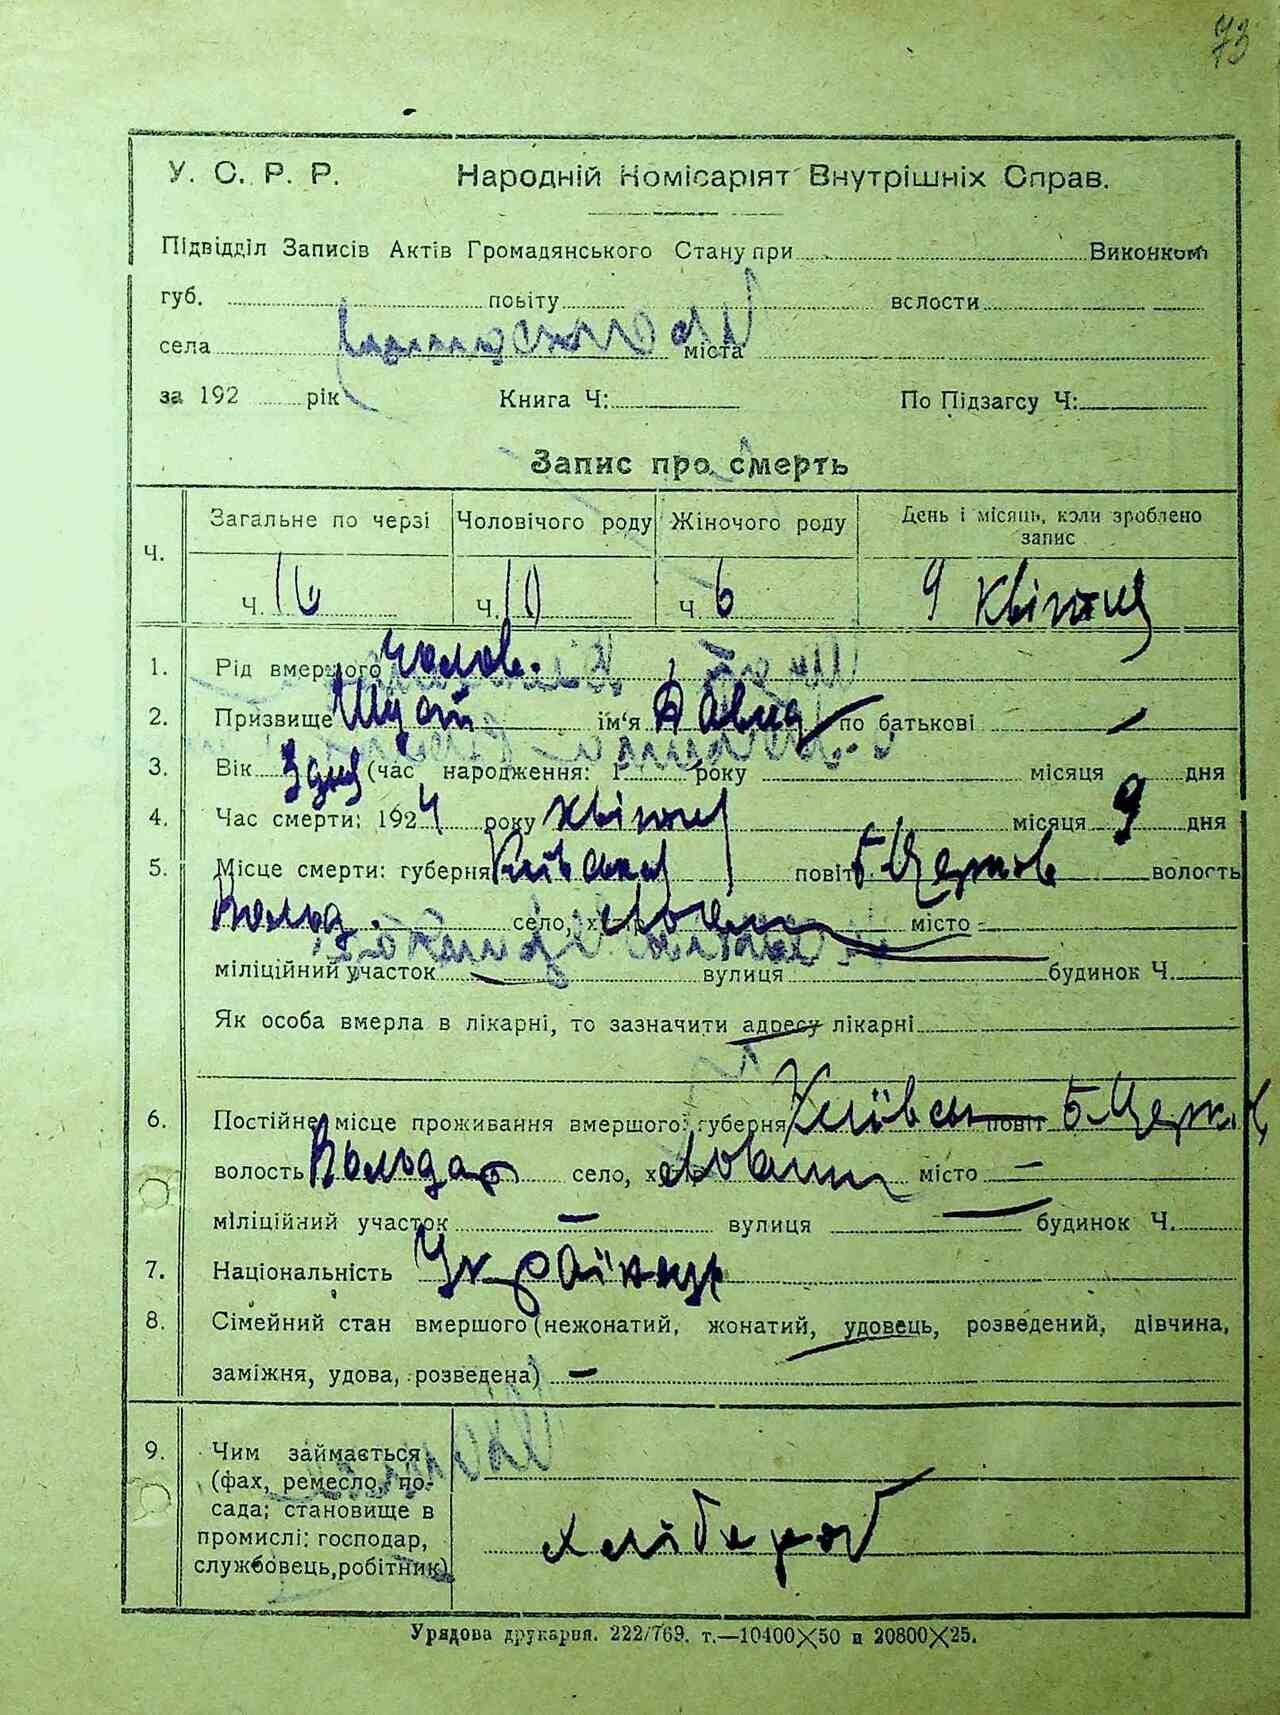 73
У. С. Р. Р. Народній Комісаріят Внутрішніх Справ.
Підвідділ Записів Актів Громадянського Стану при Виконком
губ. повіту волости
села міста
за 192 рік Книга Ч: По Підзагсу Ч:
Запис про смерть
Ч. Загальне по черзі Чоловічого роду Жіночого роду День і місяць, коли зроблено запис
Ч. 16 Ч. 10 Ч. 6 9 квітня
1. Рід вмершого Чолов.
2. Призвище ім'я Давид по батькові —
3. Вік 3 дня (час народження: 1 року місяця дня
4. Час смерти: 1924 року квітня місяця 9 дня
5. Місце смерти: губерня Київська повіт Б Церков волость
Волод. село, хутір місто -
міліційний участок — вулиця будинок Ч.
Як особа вмерла в лікарні, то зазначити адресу лікарні
6. Постійне місце проживання вмершого: губерня Київськ повіт Б. Церків
волость село, хутір місто —
міліційний участок — вулиця — будинок Ч.
7. Національність Українець
8. Сімейний стан вмершого (нежонатий, жонатий, удовець, розведений, дівчина,
заміжня, удова, розведена) —
9. Чим займається
(фах, ремесло, по-
сада; становище в
промислі: господар,
службовець, робітник)
хлібороб
Урядова друкарня. 222/769. т.—10400X50 и 20800X25.